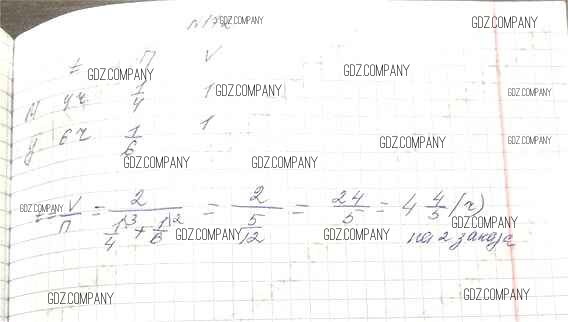 GDZ.COMPANY GDZ.COMPANY
t П V
GDZ.COMPANY GDZ.COMPANY
М 4ч 1/4 1 GDZ.COMPANY GDZ.COMPANY
У 6ч 1/6 1 GDZ.COMPANY GDZ.COMPANY
GDZ.COMPANY GDZ.COMPANY
GDZ.COMPANY t = V/П = 2/(1/4^3 + 1/6^2) = 2/(5/12) = 24/5 = 4 4/5 (ч)
GDZ.COMPANY GDZ.COMPANY GDZ.COMPANY
на 2 заказа
GDZ.COMPANY GDZ.COMPANY